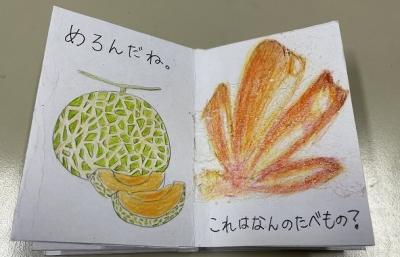 めろんだね。
これはなんのたべもの?